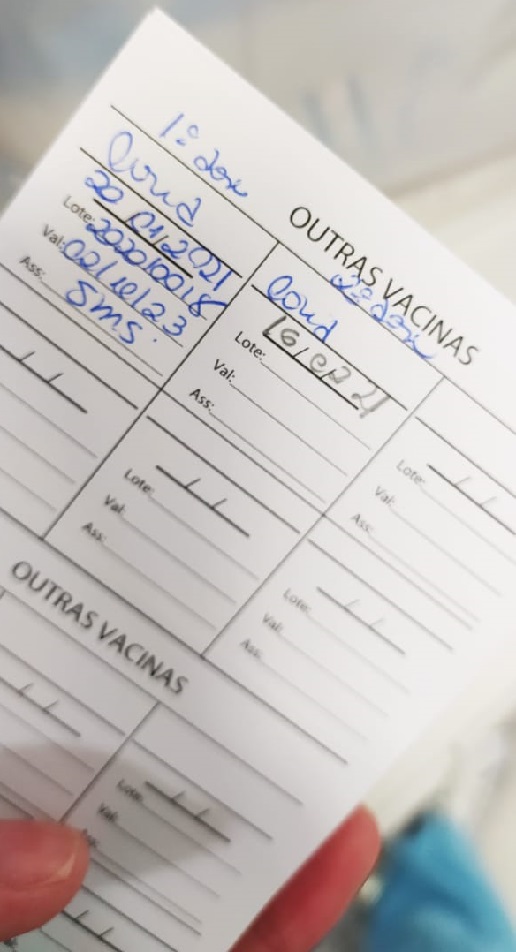 OUTRAS VACINAS
1ª dose
Covid
20/01/2021
Lote: 202010018
Val: 02/10/23
Ass: SMS.
2ª dose
Covid
16/02/21
Lote:
Val:
Ass:
Lote:
Val:
Ass:
Lote:
Val:
Ass:
Lote:
Val:
Ass:
OUTRAS VACINAS
Lote:
Val:
Ass: